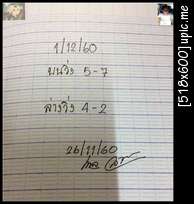 1/12/60
บนวิ่ง 5-7
ล่างวิ่ง 4-2
26/11/60
[518x600]upic.me